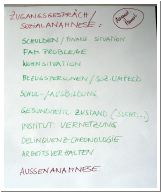 ZUGANGSGESPRÄCH /
SOZIALANAMNESE:
SCHULDEN / FINANZ SITUATION
FAM. PROBLEME
WOHNSITUATION
BEZUGSPERSONEN / SOZ. UMFELD
SCHUL-/AUSBILDUNG
GESUNDHEITL. ZUSTAND (SUCHT...)
INSTITUT. VERNETZUNG
DELINQUENZ-CHRONOLOGIE
ARBEITSVERHALTEN
AUSSENANAMNESE